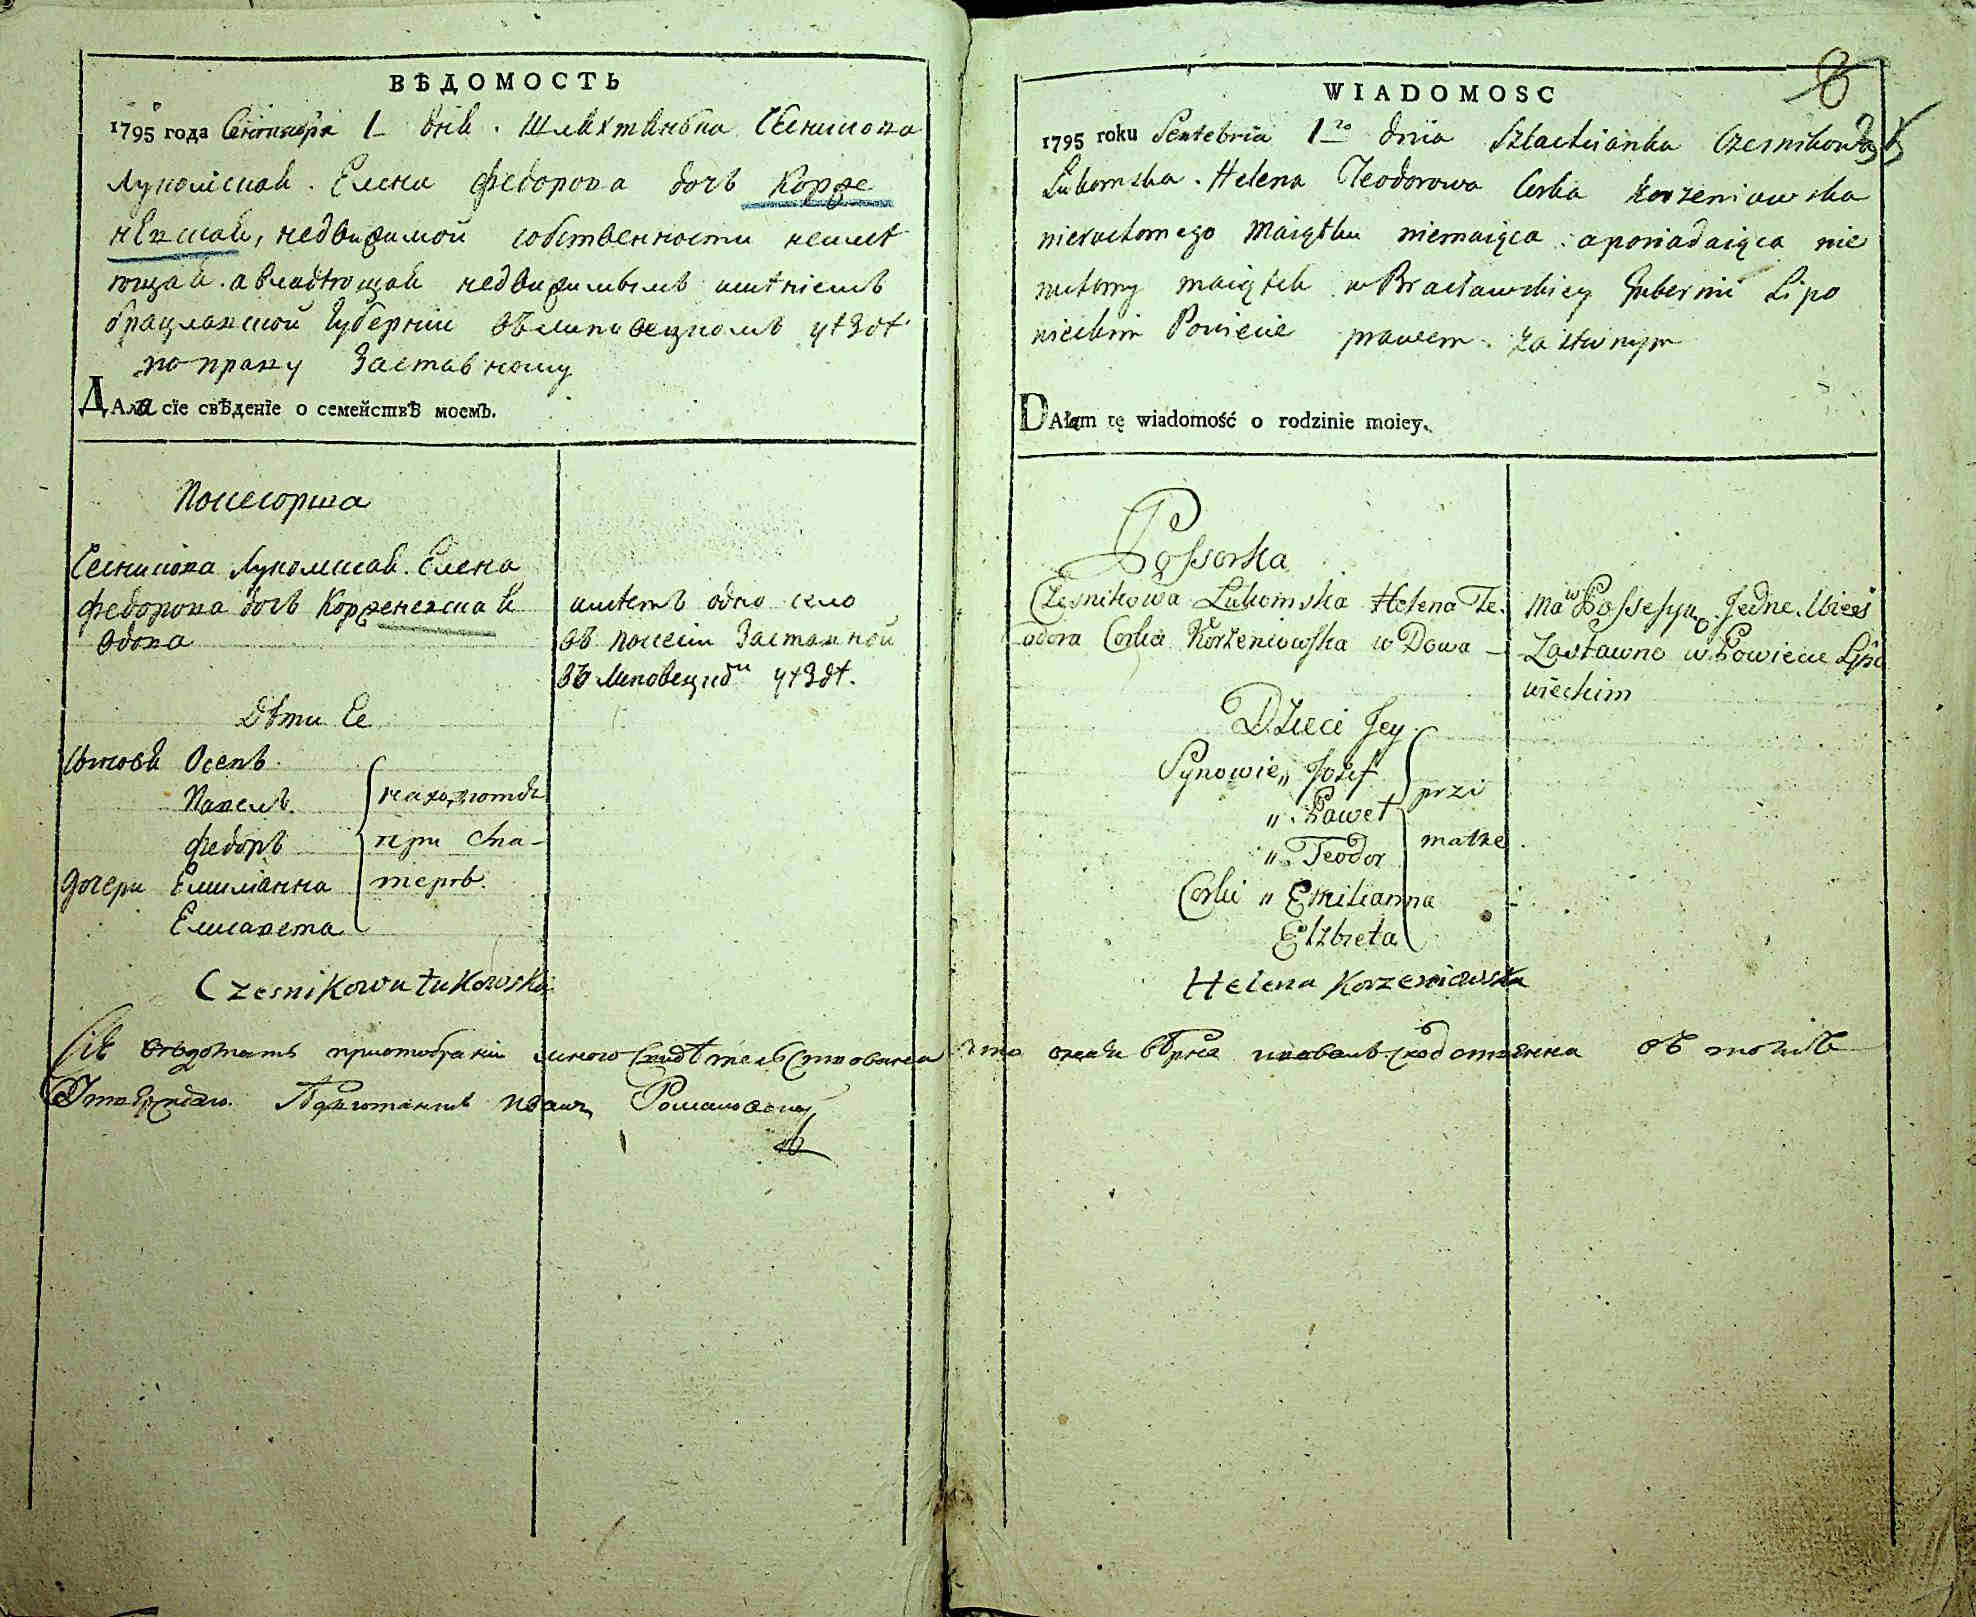 ВѢДОМОСТЬ
1795 года Сентября 1 дня. Шляхтянка Чесникова
Лукомская. Елена Федорова дочь Корже
невская, недвижимой собственности неимѣ
ющая. авладѣющая недвижимымъ имѣнiемъ
брацлавской Губернiи въ Липовецкомъ уѣздѣ
по праву Заставному
ДАла сїе свѣденїе о семействѣ моемъ.
Посесорша
Чесникова Лукомская. Елена
Федорова дочь Корженевская
вдова
имѣетъ одно село
въ посесiи Заставной
въ Липовецкомъ уѣздѣ.
Дѣти Ее
Сыновя Осепъ
Павелъ
Федоръ
дочери Емилiанна
Елисавета
находятся
при Ма-
терѣ.
Czesnikowa Łukomska
Сiя вѣдомость приотобранiи мною свидѣтельствована что оная вѣрна сходственна въ томъ
Утверждаю.
WIADOMOSC
8
1795 roku Sentebria 1go dnia Szlachcianka Czesnikowa
Łukomska. Helena Teodorowa Corka Korzeniowska
nieruchomego Maiątku niemaiąca. aposiadaiąca nie
ruchomy maiątek w Bracławskiey Guberni Lipo
wieckim Powiecie prawem Zastawnym
DAłam tę wiadomość o rodzinie moiey.
Possorka
Czesnikowa Łukomska Helena Te-
odora Corka Korzeniowska w Dowa –
Ma w Possesyi Jedne Wieś
Zastawno w Powiecie Lipo
wieckim
Dzieci Jey
Synowie „ Jozef
„ Paweł
„ Teodor
Corki „ Emilianna
Elzbieta
przi
matke
Helena Korzeniowska